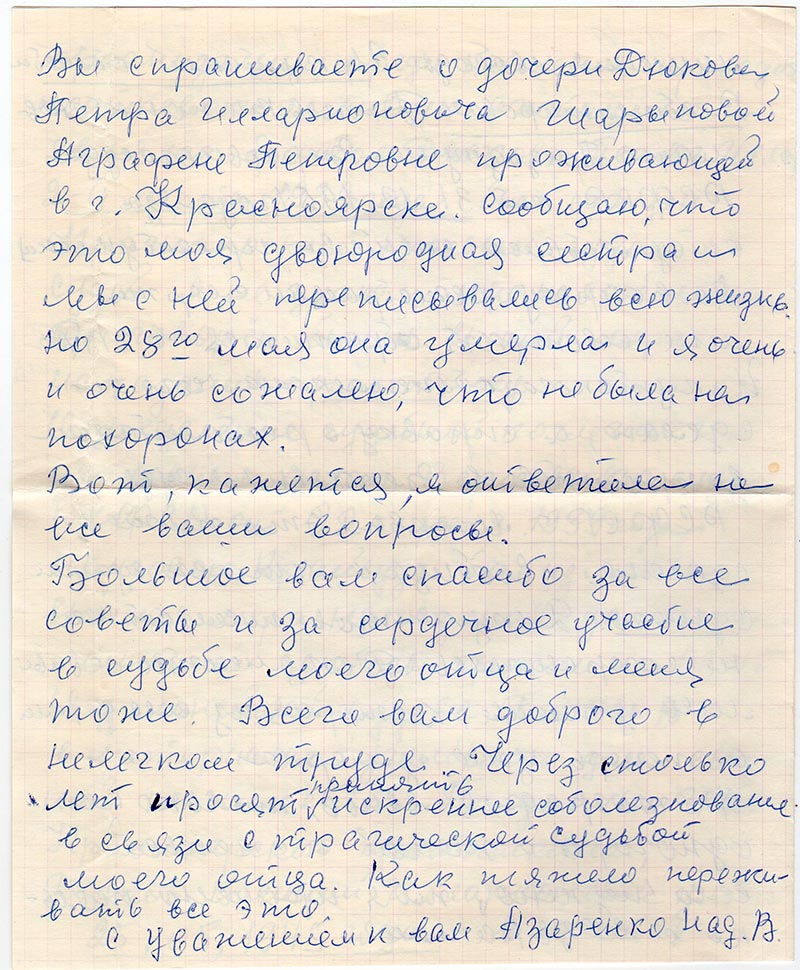 Вы спрашиваете о дочери Дюкова
Петра Илларионовича Шарыповой
Аграфене Петровне проживающей
в г. Красноярске. Сообщаю, что
это моя двоюродная сестра и
мы с ней переписывались всю жизнь.
но 28го мая она умерла и я очень
и очень сожалею, что не была на
похоронах.
Вот, кажется, я ответила на
все ваши вопросы.
Большое вам спасибо за все
советы и за сердечное участие
в судьбе моего отца и меня
тоже. Всего вам доброго в
нелегком труде. Через столько
лет просят принять искренние соболезнования
в связи с трагической судьбой
моего отца. Как тяжело пережи-
вать все это
С уважением к вам Азаренко Над. В.